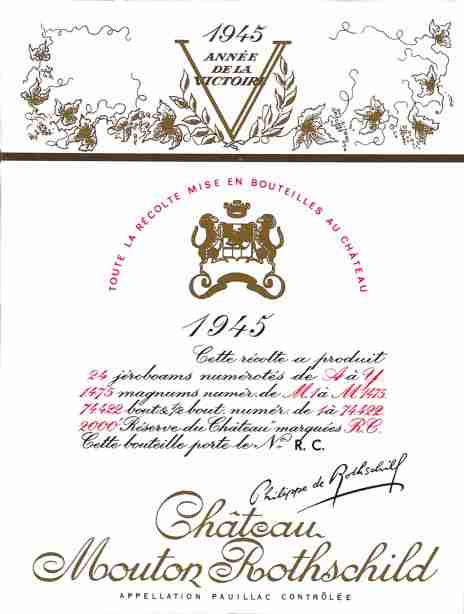 1945
ANNÉE
DE LA
VICTOIRE
TOUTE LA RÉCOLTE MISE EN BOUTEILLES AU CHÂTEAU
1945
Cette récolte a produit
24 jéroboams numérotés de A à Y
1475 magnums numér. de M.1 à M 1475
74422 bout. & ½ bout. numér. de 1 à 74422
2000 "Réserve du Château" marquées R.C.
Cette bouteille porte le No. R.C.
Philippe de Rothschild
Château
Mouton Rothschild
APPELLATION PAUILLAC CONTRÔLÉE